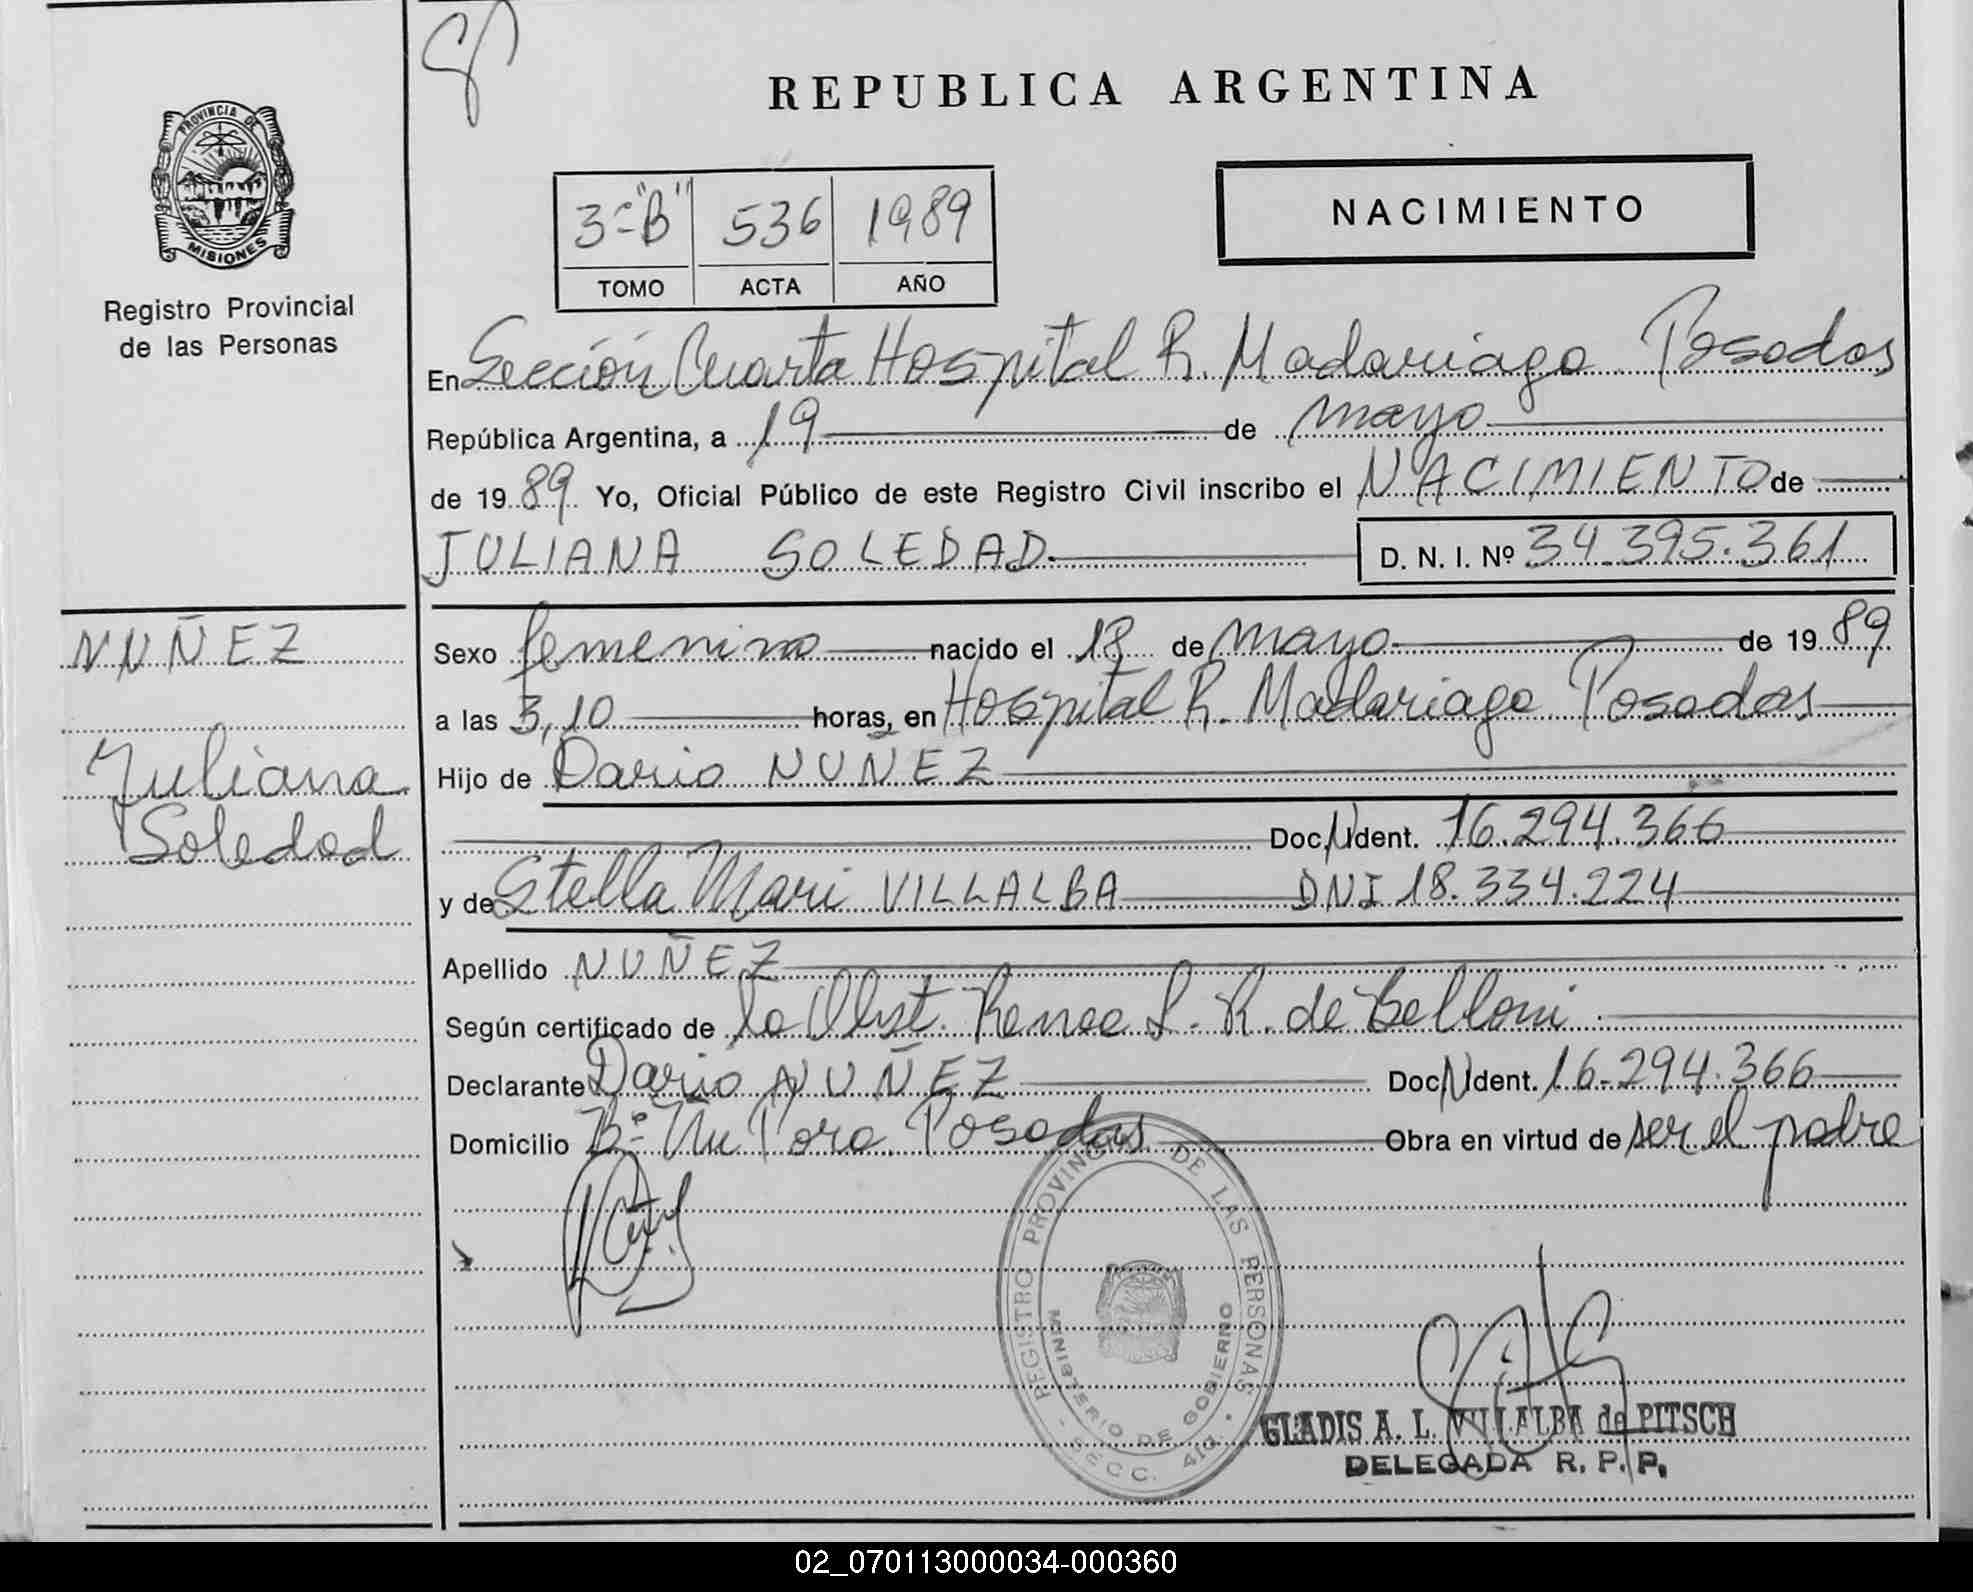 REPUBLICA ARGENTINA
PROVINCIA DE
MISIONES
Registro Provincial
de las Personas
3-"B" 536 1989
TOMO ACTA AÑO
NACIMIENTO
En Sección Cuarta Hospital R. Madariaga Posadas
República Argentina, a 19 de mayo
de 1989 Yo, Oficial Público de este Registro Civil inscribo el NACIMIENTO de
JULIANA SOLEDAD D. N. I. Nº 34.395.361
NUÑEZ
Juliana
Soledad
Sexo femenino nacido el 18 de mayo de 1989
a las 3,10 horas, en Hospital R. Madariaga Posadas
Hijo de Dario NUÑEZ
Doc. Ident. 16.294.366
y de Stella Mari VILLALBA DNI 18.334.224
Apellido NUÑEZ
Según certificado de la Obst. Renee L. R. de Belloni
Declarante Dario NUÑEZ Doc. Ident. 16.294.366
Domicilio Bº Ñu Pora Posadas Obra en virtud de ser el padre
REGISTRO PROVINCIAL DE LAS PERSONAS
MINISTERIO DE GOBIERNO
SECC. 4ta.
GLADIS A. L. VILLALBA de PITSCH
DELEGADA R. P. P.
02_070113000034-000360